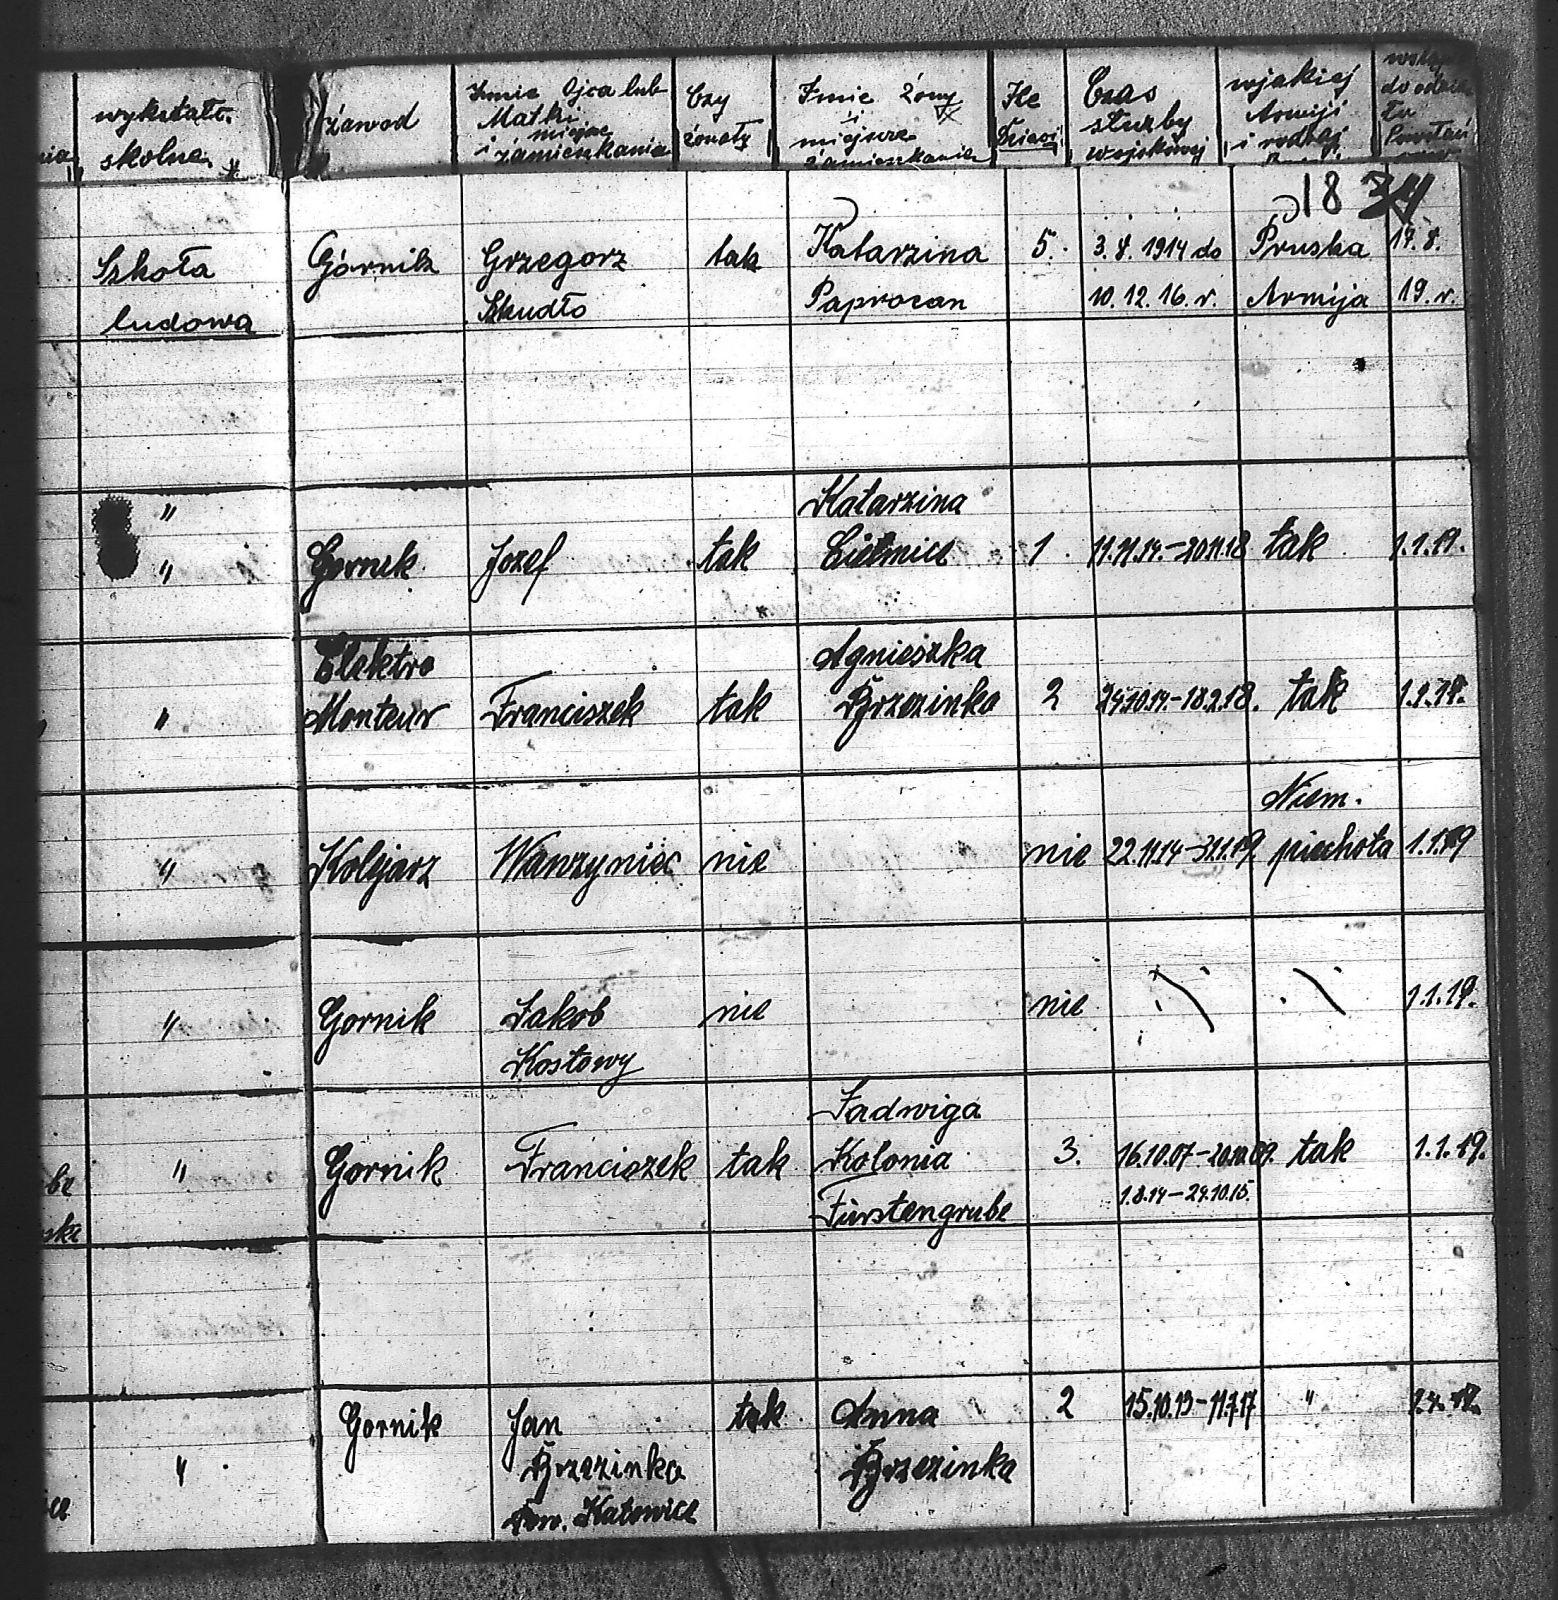 wykształc. skolne
zawod
Imie Ojca lub Matki i miejsce zamieszkania
Czy żonaty
Imie żony i miejsce zamieszkania
Ile Dzieci
Czas służby wojskowej
w jakiej Armiji i rodzaj
do Powstań
18 34
Szkoła Górnik Grzegorz tak Katarzina 5. 3.8.1914 do Pruska 17.8.
ludowa Szkudło Paprocan 10.12.16.r. Armija 19.r.
" Katarzina
" Gornik Jozef tak 1 11.11.14.-20.11.18 tak 1.1.19.
Elektro Agnieszka
" Monteur Franciszek tak Brzezinka 2 24.10.14.-18.2.18. tak 1.1.19.
Niem.
" Kolejarz Wawzyniec nie nie 22.11.14-31.1.19. piechota 1.1.19
" Gornik Jakob nie nie 1.1.19.
Kostowy
Jadwiga
" Gornik Franciszek tak Kolonia 3. 16.10.07- tak 1.1.19.
Fürstengrube 1.8.14-24.10.15.
Gornik Jan tak Anna 2 15.10.13-11.7.17 "
" Brzezinka Brzezinka
Pow. Katowice